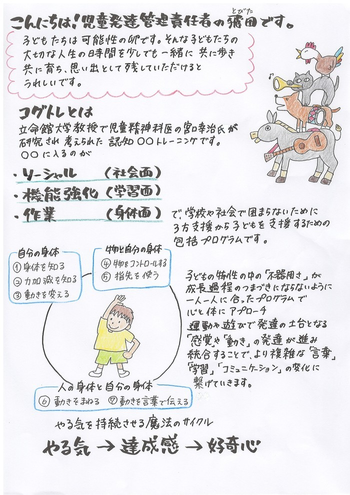 こんにちは!児童発達管理責任者の飛田です。
とびた
子どもたちは可能性の卵です。そんな子どもたちの
大切な人生の1日時間を少しでも一緒に共に歩き
共に育ち、思い出として残していただけると
うれしいです。
コグトレとは
立命館大学教授で児童精神科医の宮口幸治氏が
研究され考えられた認知〇〇トレーニングです。
〇〇に入るのが
・ソーシャル (社会面)
・機能強化 (学習面)
・作業 (身体面)
で、学校や社会で困まらないために
3方支援から子どもを支援するための
包括プログラムです。
自分の身体
①身体を知る
②力加減を知る
③動きを変える
物と自分の身体
④物をコントロールする
⑤指先を使う
人の身体と自分の身体
⑥動きをまねる ⑦動きを言葉で伝える
子どもの特性の中の「不器用さ」が
成長過程のつまづきにならないように
一人一人に合ったプログラムで
心と体にアプローチ
運動や遊びで発達の土台となる
「感覚」や「動き」の発達が進み
統合することで、より複雑な「言葉」
「学習」「コミュニケーション」の変化に
繋げていきます。
やる気を持続させる魔法のサイクル
やる気→達成感→好奇心